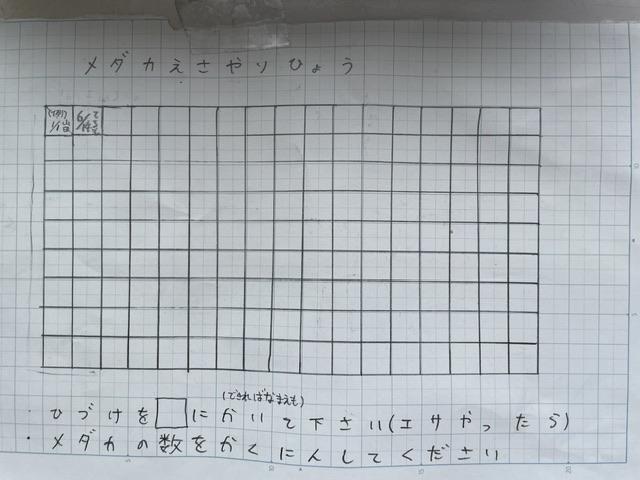 メダカえさやりひょう
(例)
1/1
6/14
(できればなまえも)
・ひづけを□にかいて下さい(エサやったら)
・メダカの数をかくにんしてください